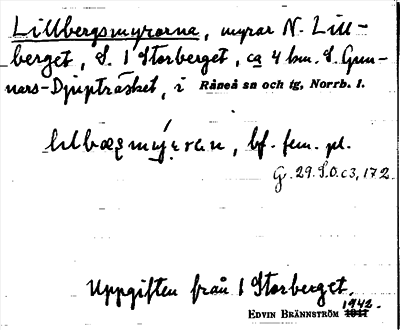 Lillbergsmyrarna, myrar N. Lill-
berget, S. 1 Storberget, ca 4 km. S. Gun-
nars-Djupträsket, i Råneå sn och tg, Norrb. l.
bf. fem. pl.
G. 29. S.O. c3, 172.
Uppgiften från 1 Storberget.
1942.
EDVIN BRÄNNSTRÖM 1941